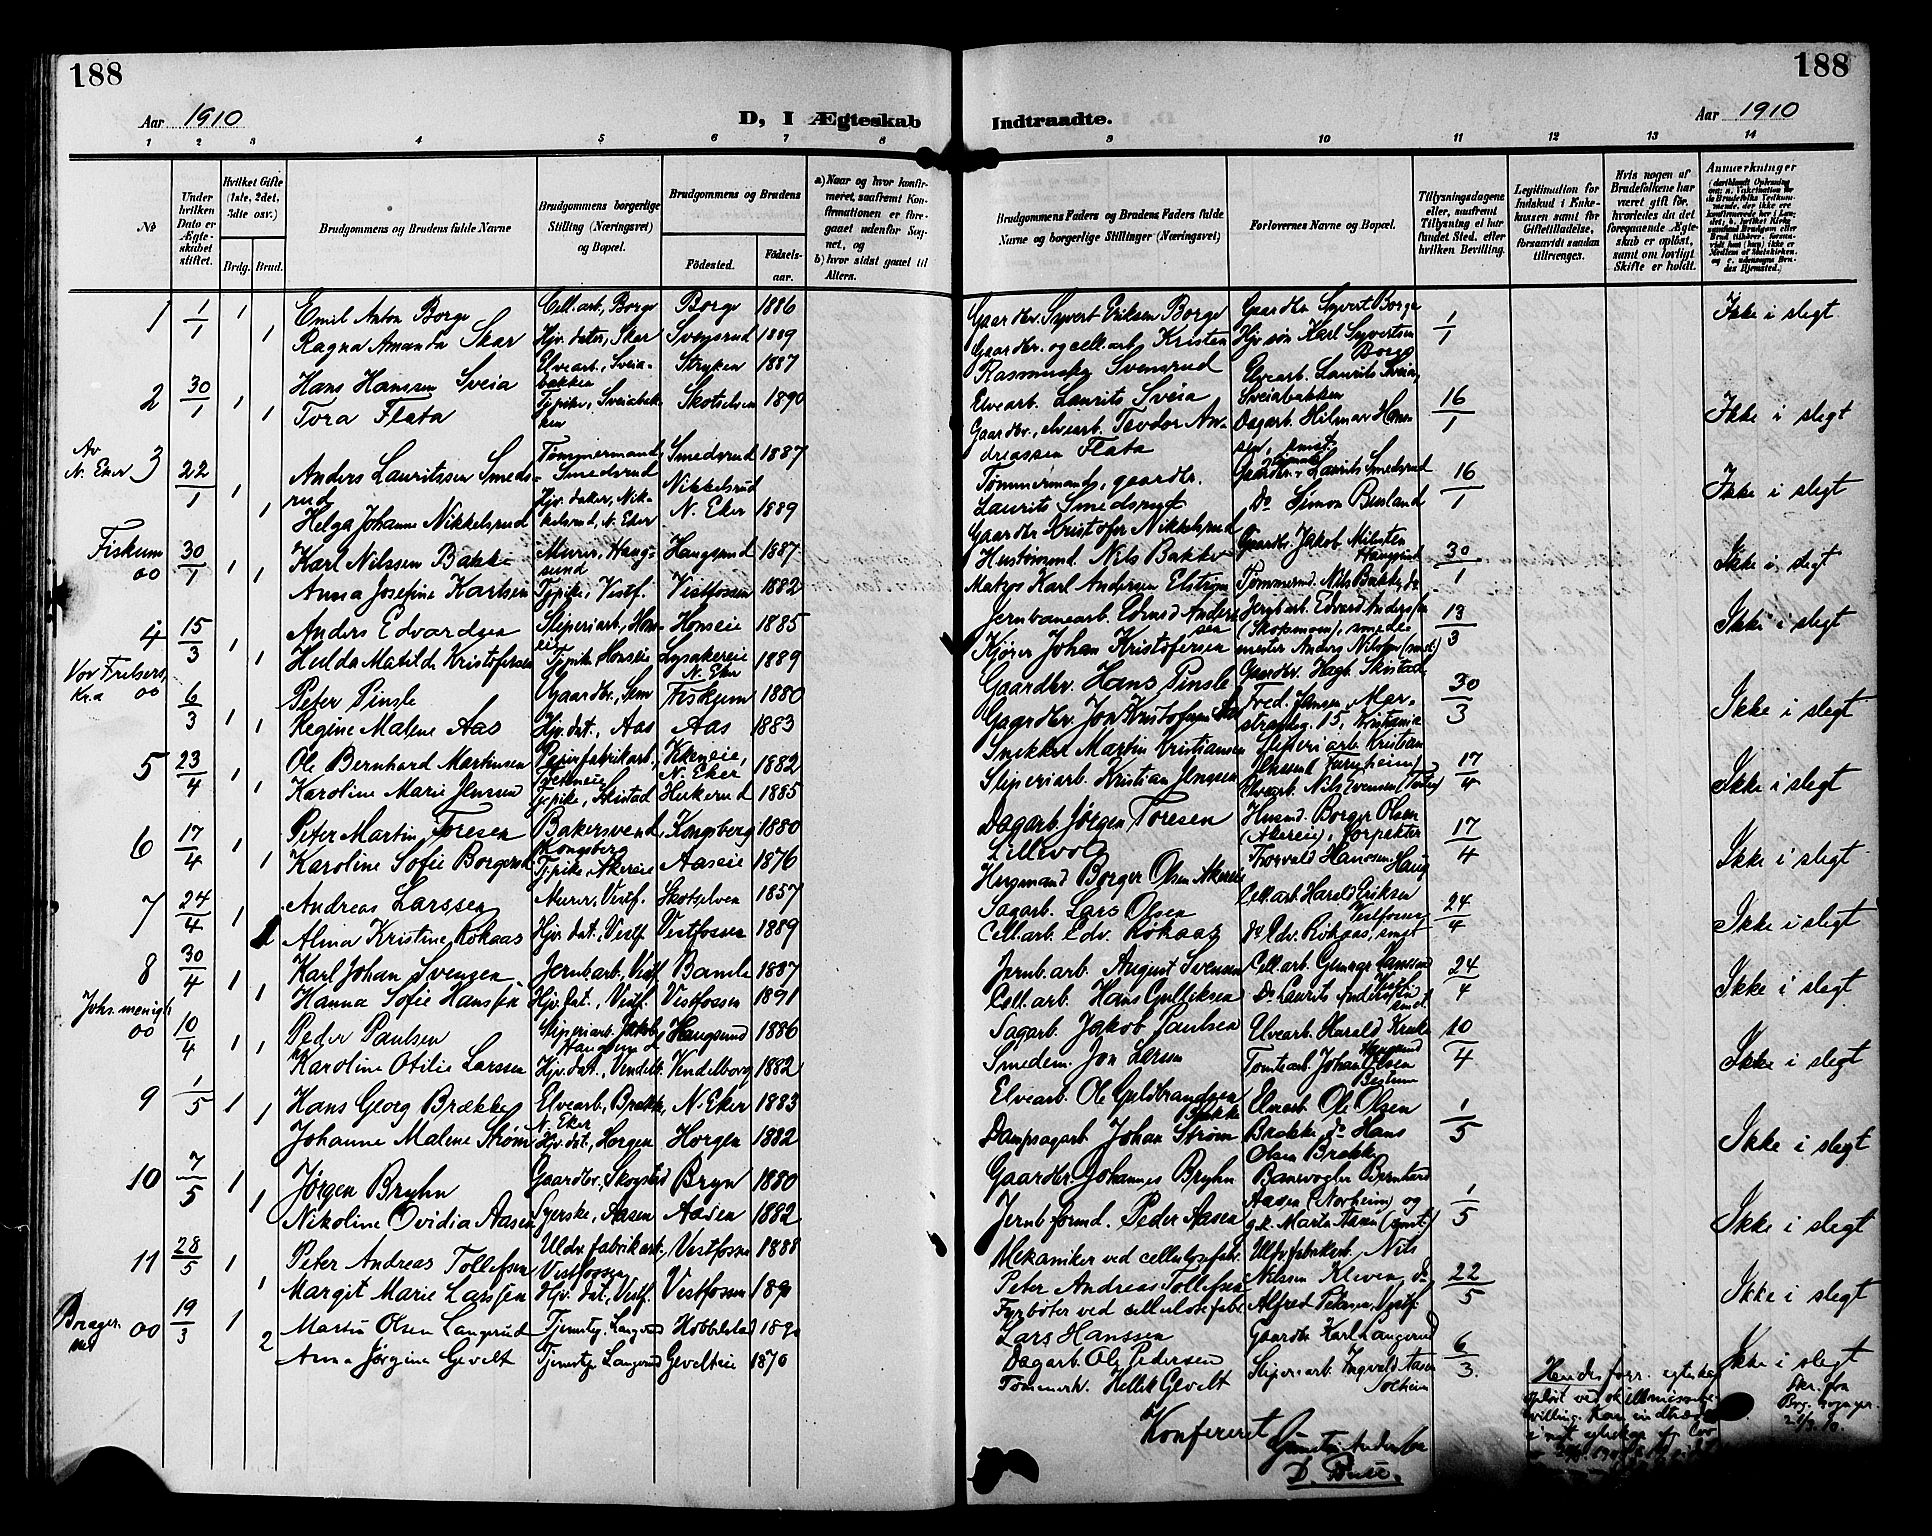 188
188
Aar 1910
D, I Ægteskab
Indtraadte.
Aar 1910
1 2 3 4 5 6 7 8
9 10 11 12 13 14
No
Under hvilken Dato er Ægteskabet stiftet.
Hvilket Gifte (1ste, 2det, 3die osv.)
Brdg. Brud.
Brudgommens og Brudens fulde Navne
Brudgommens borgerlige Stilling (Næringsvei) og Bopæl.
Brudgommens og Brudens
Fødested.
Fødselsaar.
a) Naar og hvor konfirmeret, saafremt Konfirmationen er foregaaet udenfor Sognet, og
b) hvor sidst gaaet til Alters.
Brudgommens Faders og Brudens Faders fulde Navne og borgerlige Stillinger (Næringsvei)
Forlovernes Navne og Bopæl.
Tillysningsdagene eller, saafremt Tillysning ei har fundet Sted, efter hvilken Bevilling.
Legitimation for Indskud i Enkekassen samt for Giftetilladelse, forsaavidt saadan tiltrænges.
Hvis nogen af Brudefolkene har været gift før, hvorledes da det foregaaende Ægteskab er opløst, samt om lovligt Skifte er holdt.
Anmærkninger
1 1/1 1 Emil Anton Borge Cell.arb. Borge Borge 1886 Gaardbr. Syvert Eriksen Borge Gaardbr. Syvert Borge 1/1 Ikke i slegt
1 Ragna Amanda Skar Hjv. datter, Skar Svensrud 1889 Gaardbr. og cell.arb. Kristen Hjv. søn Karl Syvertsen Borge
Rasmussen Svensrud
2 30/1 1 Hans Hansen Sveia Elvearb., Sveiabakken Stryken 1887 Elvearb. Laurits Sveia Elvearb. Laurits Sveia, Sveiabakken 16/1 Ikke i slegt
1 Tora Flata Tjpike, Sveiabakken Skotselven 1890 Gaardbr., elvearb. Teodor Andreassen Flata Dagarb. Hilmar Hansen, smst.
Av N. Eker 3 22/1 1 Anders Lauritssen Smedsrud Tømmermand, Smedsrud Smedsrud 1887 Tømmermand, gaardbr. Laurits Smedsrud Gaardbr. Laurits Smedsrud 16/1 Ikke i slegt
1 Helga Johanne Nikkelsrud Hjv. datter, Nikkelsrud, N. Eker Nikkelsrud N. Eker 1889 Gaardbr. Kristofer Nikkelsrud Do Simon Busland
Fiskum 00 30/1 1 Karl Nilssen Bakke Murer, Haugsund Haugsund 1887 Hustømmd. Nils Bakke Gaardbr. Jakob Milesten Haugsund 30/1 Ikke i slegt
1 Anna Josefine Karlsen Tjpike, Vestf. Vestfossen 1882 Matros Karl Andersen Elstrøm Tømmermd. Nils Bakke, do
4 15/3 1 Anders Edvardsen Sliperiarb., Honseie Honseie 1885 Jernbanearb. Edvard Andersen Jernb.arb. Edvard Andersen 13/3 Ikke i slegt
1 Hulda Matilde Kristofersen Tjpike Honseie Lysakereie N. Eker 1889 Kjører Johan Kristofersen (Skopsmoen), smedemester Anders Nilssen (smst.)
Vor Frelsers, Kr.a 00 6/3 1 Peter Pinsle Gaardbr., Sem Fiskum 1880 Gaardbr. Hans Pinsle Gaardbr. Hagb. Skistad 30/3 Ikke i slegt
1 Regine Malene Aas Hjv. dat., Aas Aas 1883 Gaardbr. Jon Kristofersen Aas Fred. Jensen, Marstrandg. 15, Kristiania
5 23/4 1 Ole Bernhard Martinsen Papirfabrikarb., Ekneie, N. Eker 1882 Snekker Martin Kristiansen Sliperiarb. Kristian 17/4 Ikke i slegt
1 Karoline Marie Jensen Tjpike, Skistad Hukerud 1885 Sliperiarb. Kristian Jensen
6 17/4 1 Peter Martin Toresen Bakersvend, Kongsberg Kongsberg 1880 Dagarb. Jørgen Toresen Lillevold Husmd. Borger Olsen (Akereie), forpakter 17/4 Ikke i slegt
1 Karoline Sofie Borgersen Tjpike, Akereie Aaseie 1876 Husmand Borger Olsen Akereie Thorvald Hanssen Haug
7 24/4 1 Andreas Larssen Murer, Vestf. Skotselven 1857 Sagarb. Lars Olsen Cell.arb. Harald Eriksen Vestfossen 24/4 Ikke i slegt
1 Alma Kristine Røkaas Hjv. dat., Vestf. Vestfossen 1889 Cell.arb. Edv. Røkaas Do Edv. Røkaas, smst
8 30/4 1 Karl Johan Svensen Jernb.arb., Vestf. Bamle 1887 Jernb.arb. August Svensen Cell.arb. Gunnar Hanssen Vestf. 24/4 Ikke i slegt
1 Hanna Sofie Hanssen Hjv. dat., Vestf. Vestfossen 1891 Cell.arb. Hans Gulliksen Do Laurits Andersen smst.
Johs. menigh. 00 10/4 1 Peder Paulsen Sliperiarb. Haugsund Haugsund 1886 Sagarb. Jakob Paulsen Elvearb. Harald Kruke Haugsund 10/4 Ikke i slegt
1 Karoline Otilie Larssen Hjv. dat., Vendelb. Vendelborg 1882 Smedem. Jon Larsen Tomtearb. Johan Olsen Bestum
9 1/5 1 Hans Georg Brække Elvearb., Brække N. Eker N. Eker 1883 Elvearb. Ole Guldbrandsen Brække Elvearb. Ole Olsen 1/5 Ikke i slegt
1 Johanne Malene Strøm Hjv. dat., Horgen Horgen 1882 Dampsagarb. Johan Strøm Brække, do Hans Olsen Brække
10 7/5 1 Jørgen Bryhn Gaardbr., Skogstad Bryn 1880 Gaardbr. Johannes Bryhn Banevogter Bernhard 1/5 Ikke i slegt
1 Nikoline Ovidia Aasen Syerske, Aasen Aasen 1882 Jernb.formd. Peder Aasen Aasen (Norheim) og g.k. Marta Aasen (smst.)
11 28/5 1 Peter Andreas Tollefsen Uldv.fabrikarb., Vestfossen Vestfossen 1888 Mekaniker ved cellulosefabr. Peter Andreas Tollefsen Uldv.fabrikarb. Nils Nilssen Kleven, do 22/5 Ikke i slegt
1 Margit Marie Larssen Hjv. dat., Vestf. Vestfossen Fyrbøter ved cellulosefabr. Lars Hanssen Alfred Petersen, Vestf.
Bragernes 00 19/3 1 Martin Olsen Langerud Tjenestg. Langerud Hobbelstad Dagarb. Ole Pedersen Gaardbr. Karl Langerud 6/3 Ikke i slegt
2 Anna Jørgine Gevelt Tjenestg. Langerud Gevelteie 1870 Tømmerh. Hellik Gevelt Sliperiarb. Ingvald Aasen Solheim
Hendes forr. egteskap
opløst ved skilsmissebevilling.
Skr. fra Brag. sognepr. 21/3.10.
Konfereret
D. Buse.